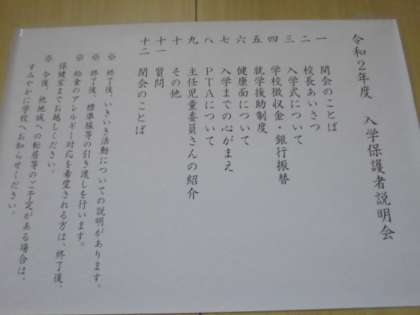 令和2年度 入学保護者説明会
一 開会のことば
二 校長あいさつ
三 入学式について
四 学校徴収金・銀行振替
五 就学援助制度
六 健康面について
七 入学までの心がまえ
八 PTAについて
九 主任児童委員さんの紹介
十 その他
十一 質問
十二 閉会のことば
※ 終了後、いきいき活動についての説明があります。
※ 終了後、標準服等の引き渡しを行います。
※ 給食のアレルギー対応を希望される方は、終了後、
保健室までお越しください。
※ 今後、他地域への転居等のご予定がある場合は、
すみやかに学校へお知らせください。